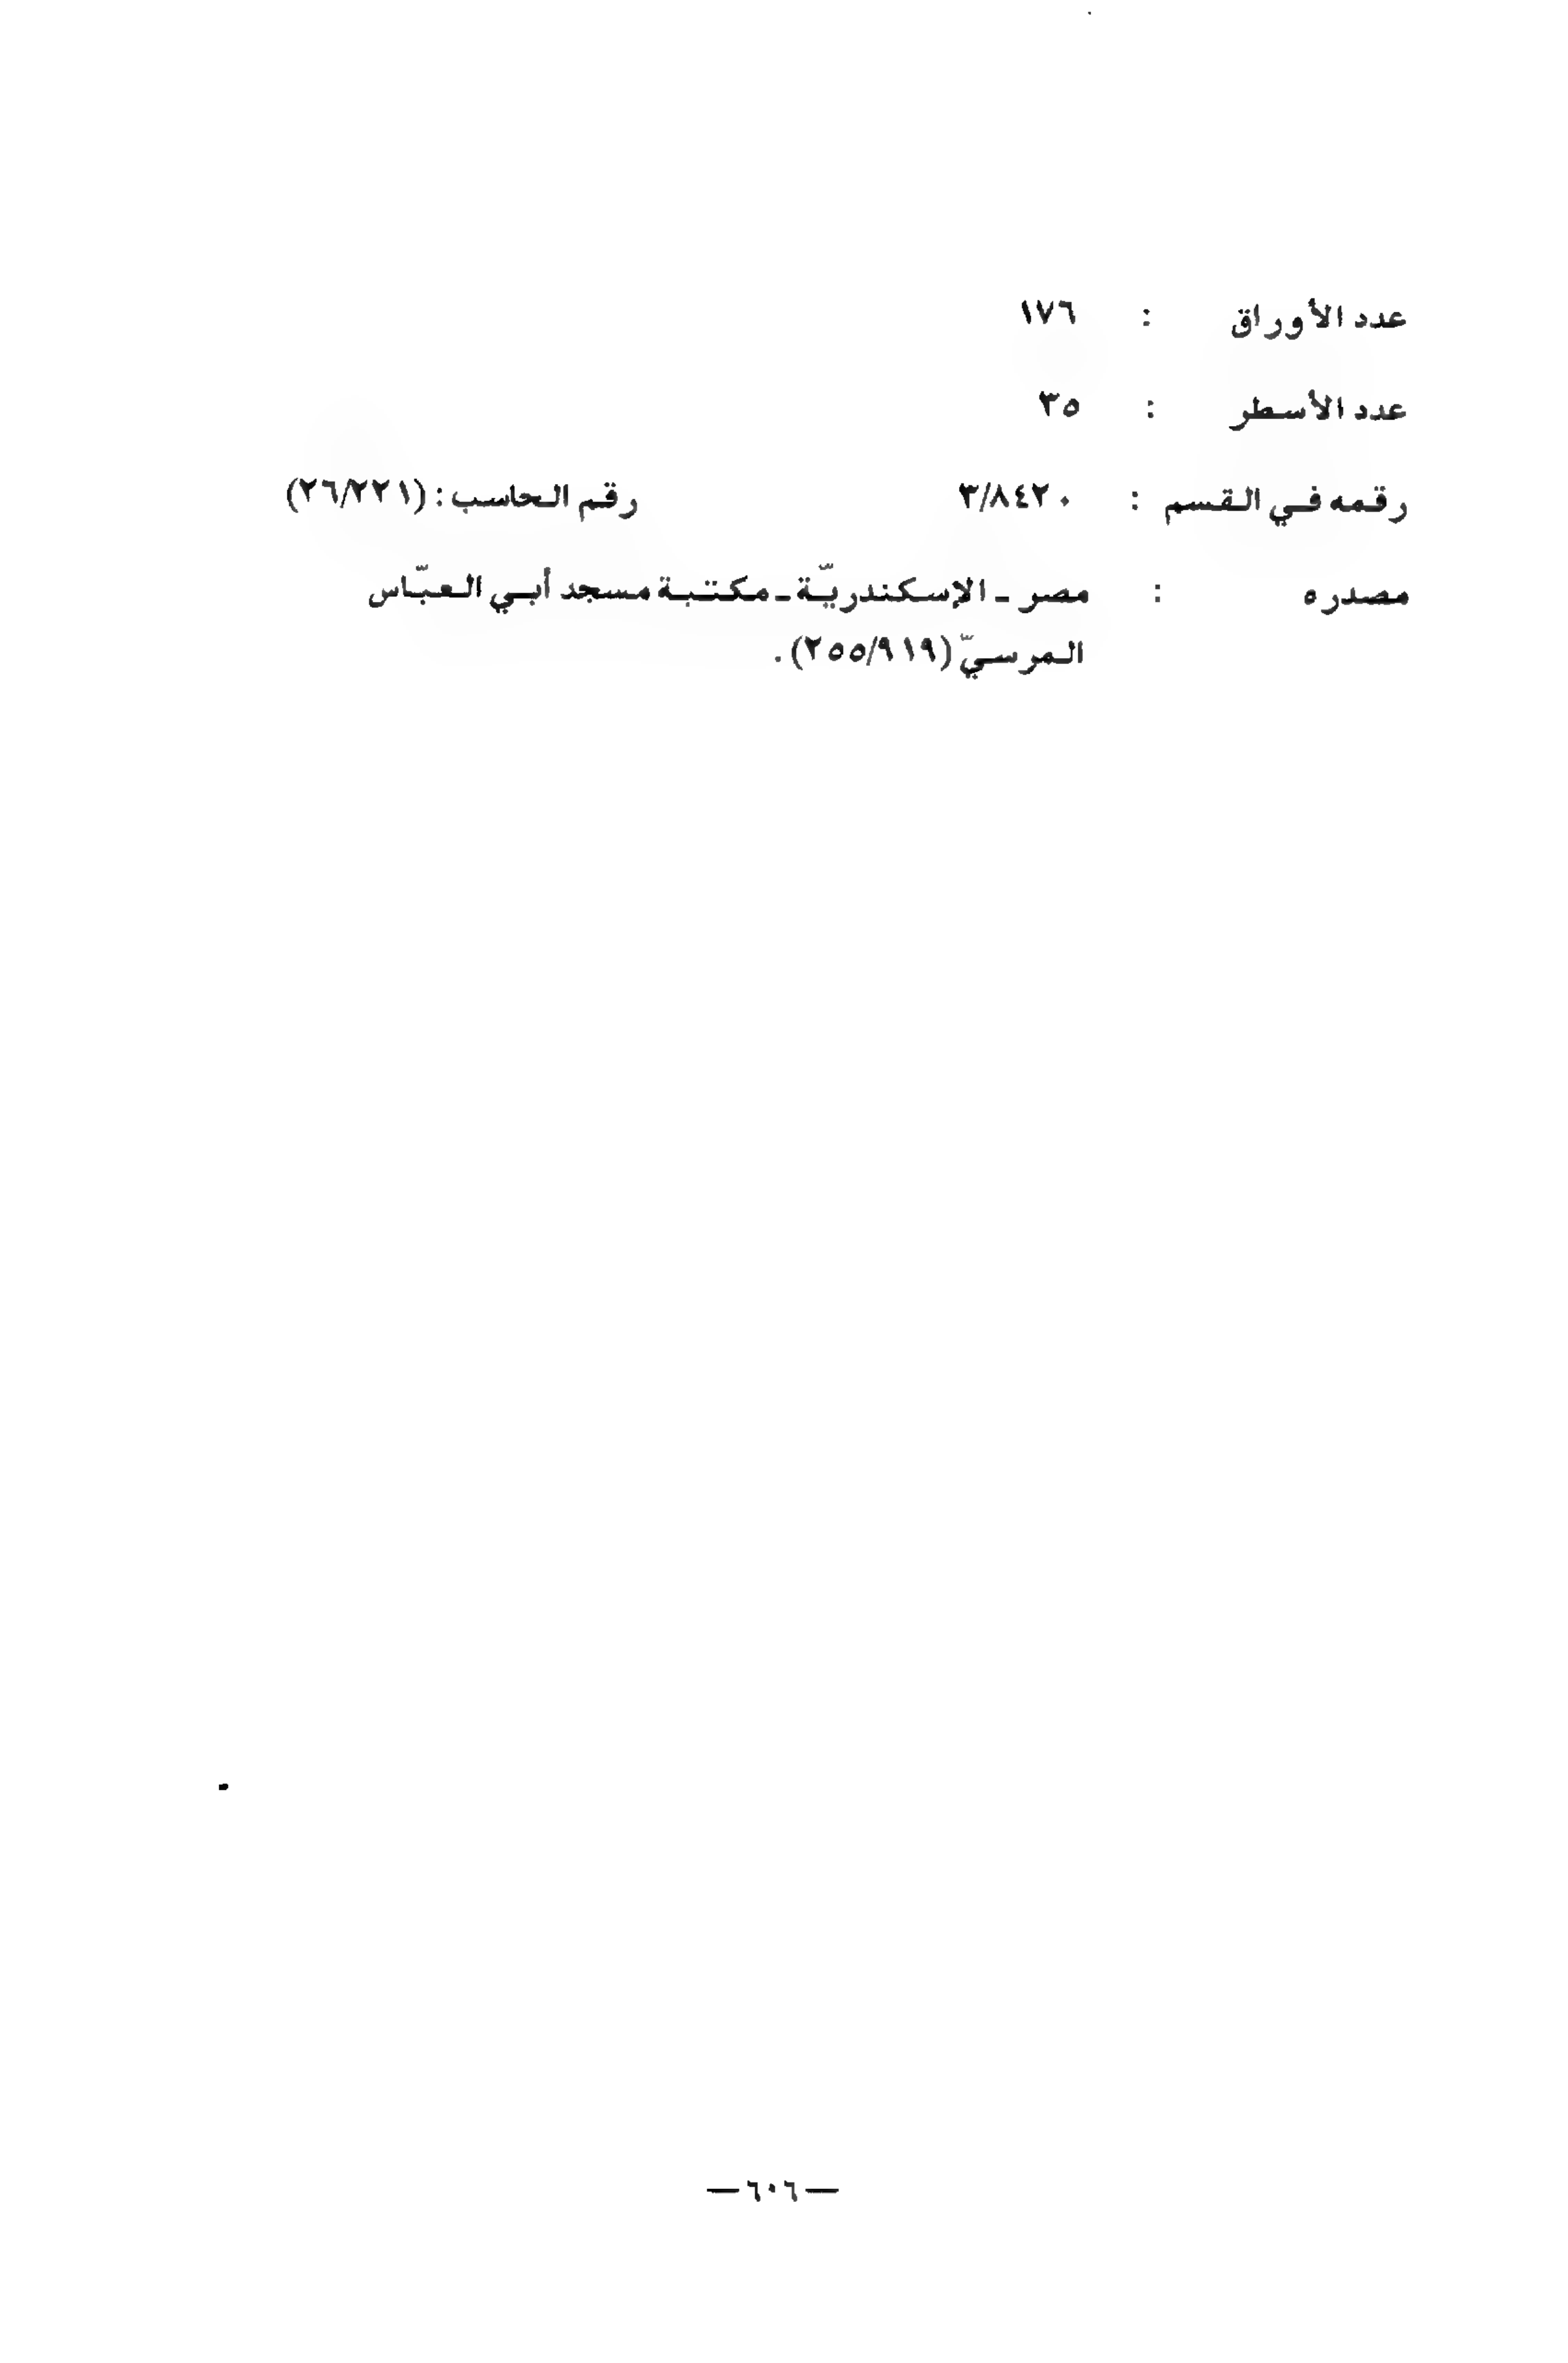 عدد الأوراق : ١٧٦
عدد الأسطر : ٣٥
رقمه في القسم : ٣/٨٤٢٠ رقم الحاسب : (٢٦/٢٢١)
مصدره : مصر ـ الإسكندريّة ـ مكتبة مسجد أبي العبّاس
المرسيّ (٢٥٥/٩١٩).
— ٦٠٦ —